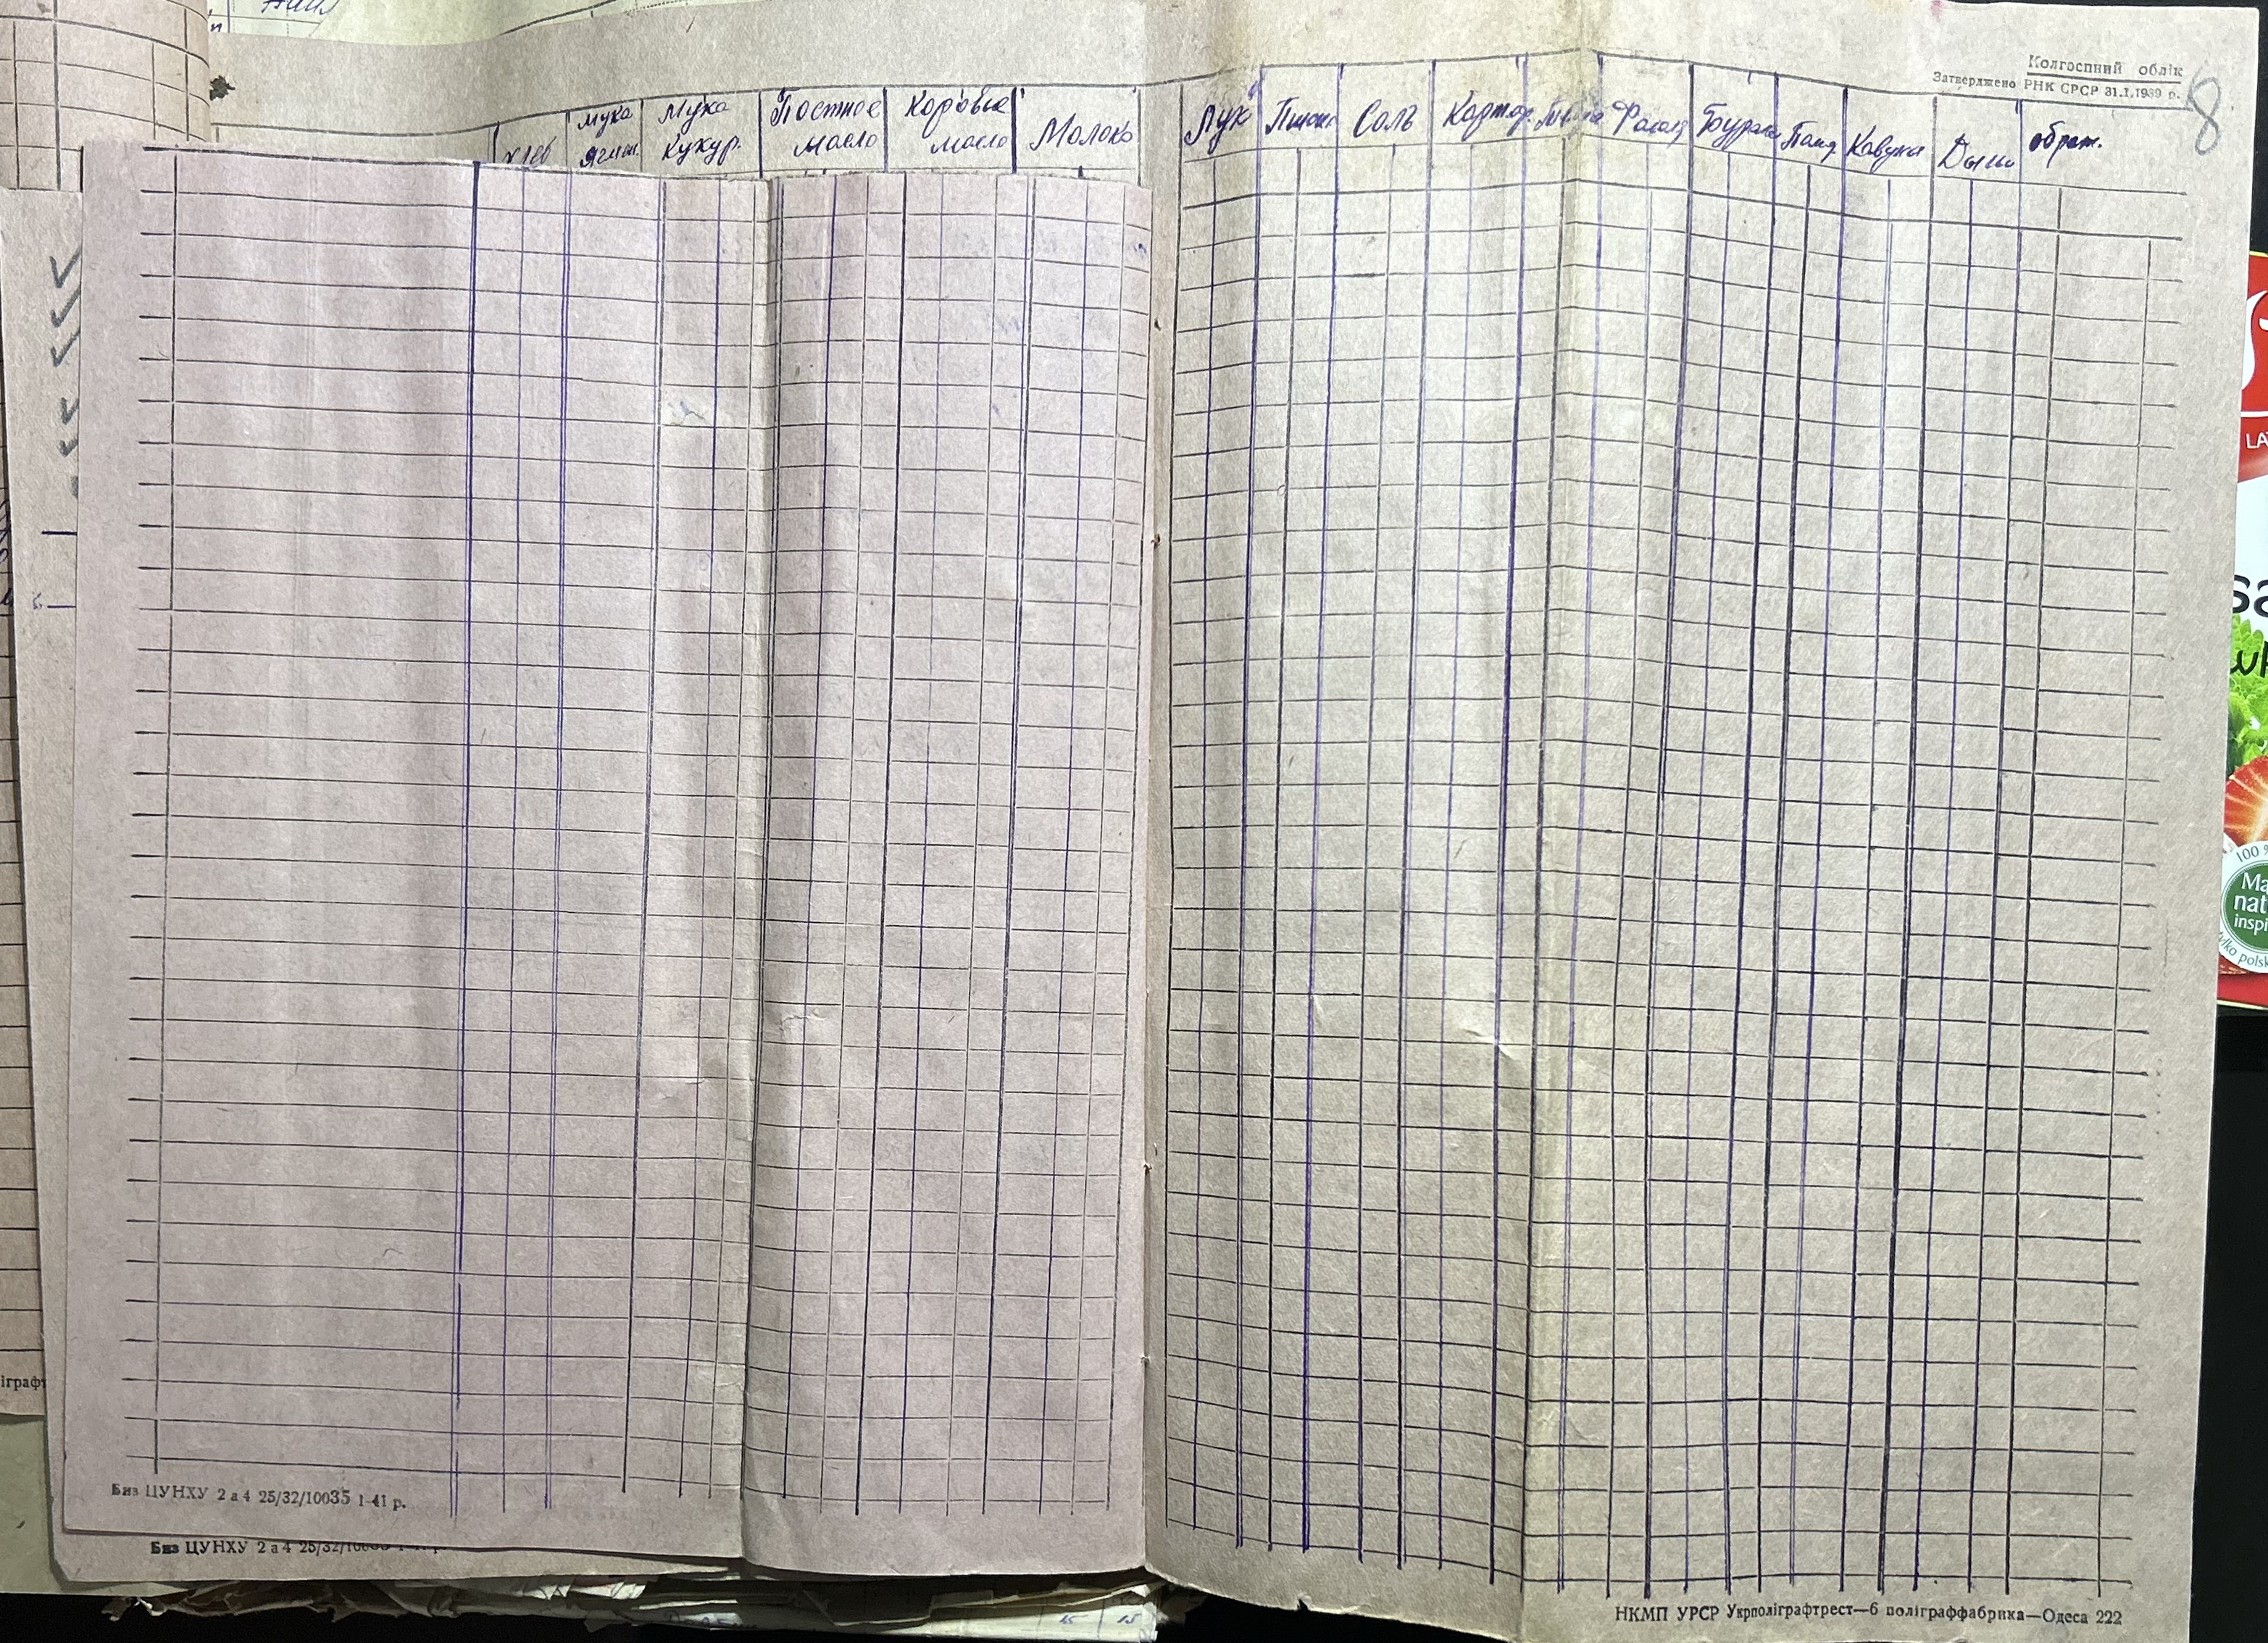 Колгоспний облік
Затверджено РНК СРСР 31.I.1939 р.
8
хлеб
Мука ячмен.
Мука кукур.
Постное масло
Коровье масло
Молоко
Лук
Пшоно
Соль
Картоф.
Фасоля
Бурака
Помид.
Кавуна
Дыни
обрат.
Биз ЦУНХУ 2 а 4 25/32/10035 1-41 р.
Биз ЦУНХУ 2 а 4 25/32/10035 1-41 р.
НКМП УРСР Укрполіграфтрест—6 поліграффабрика—Одеса 222
15 15
100 %